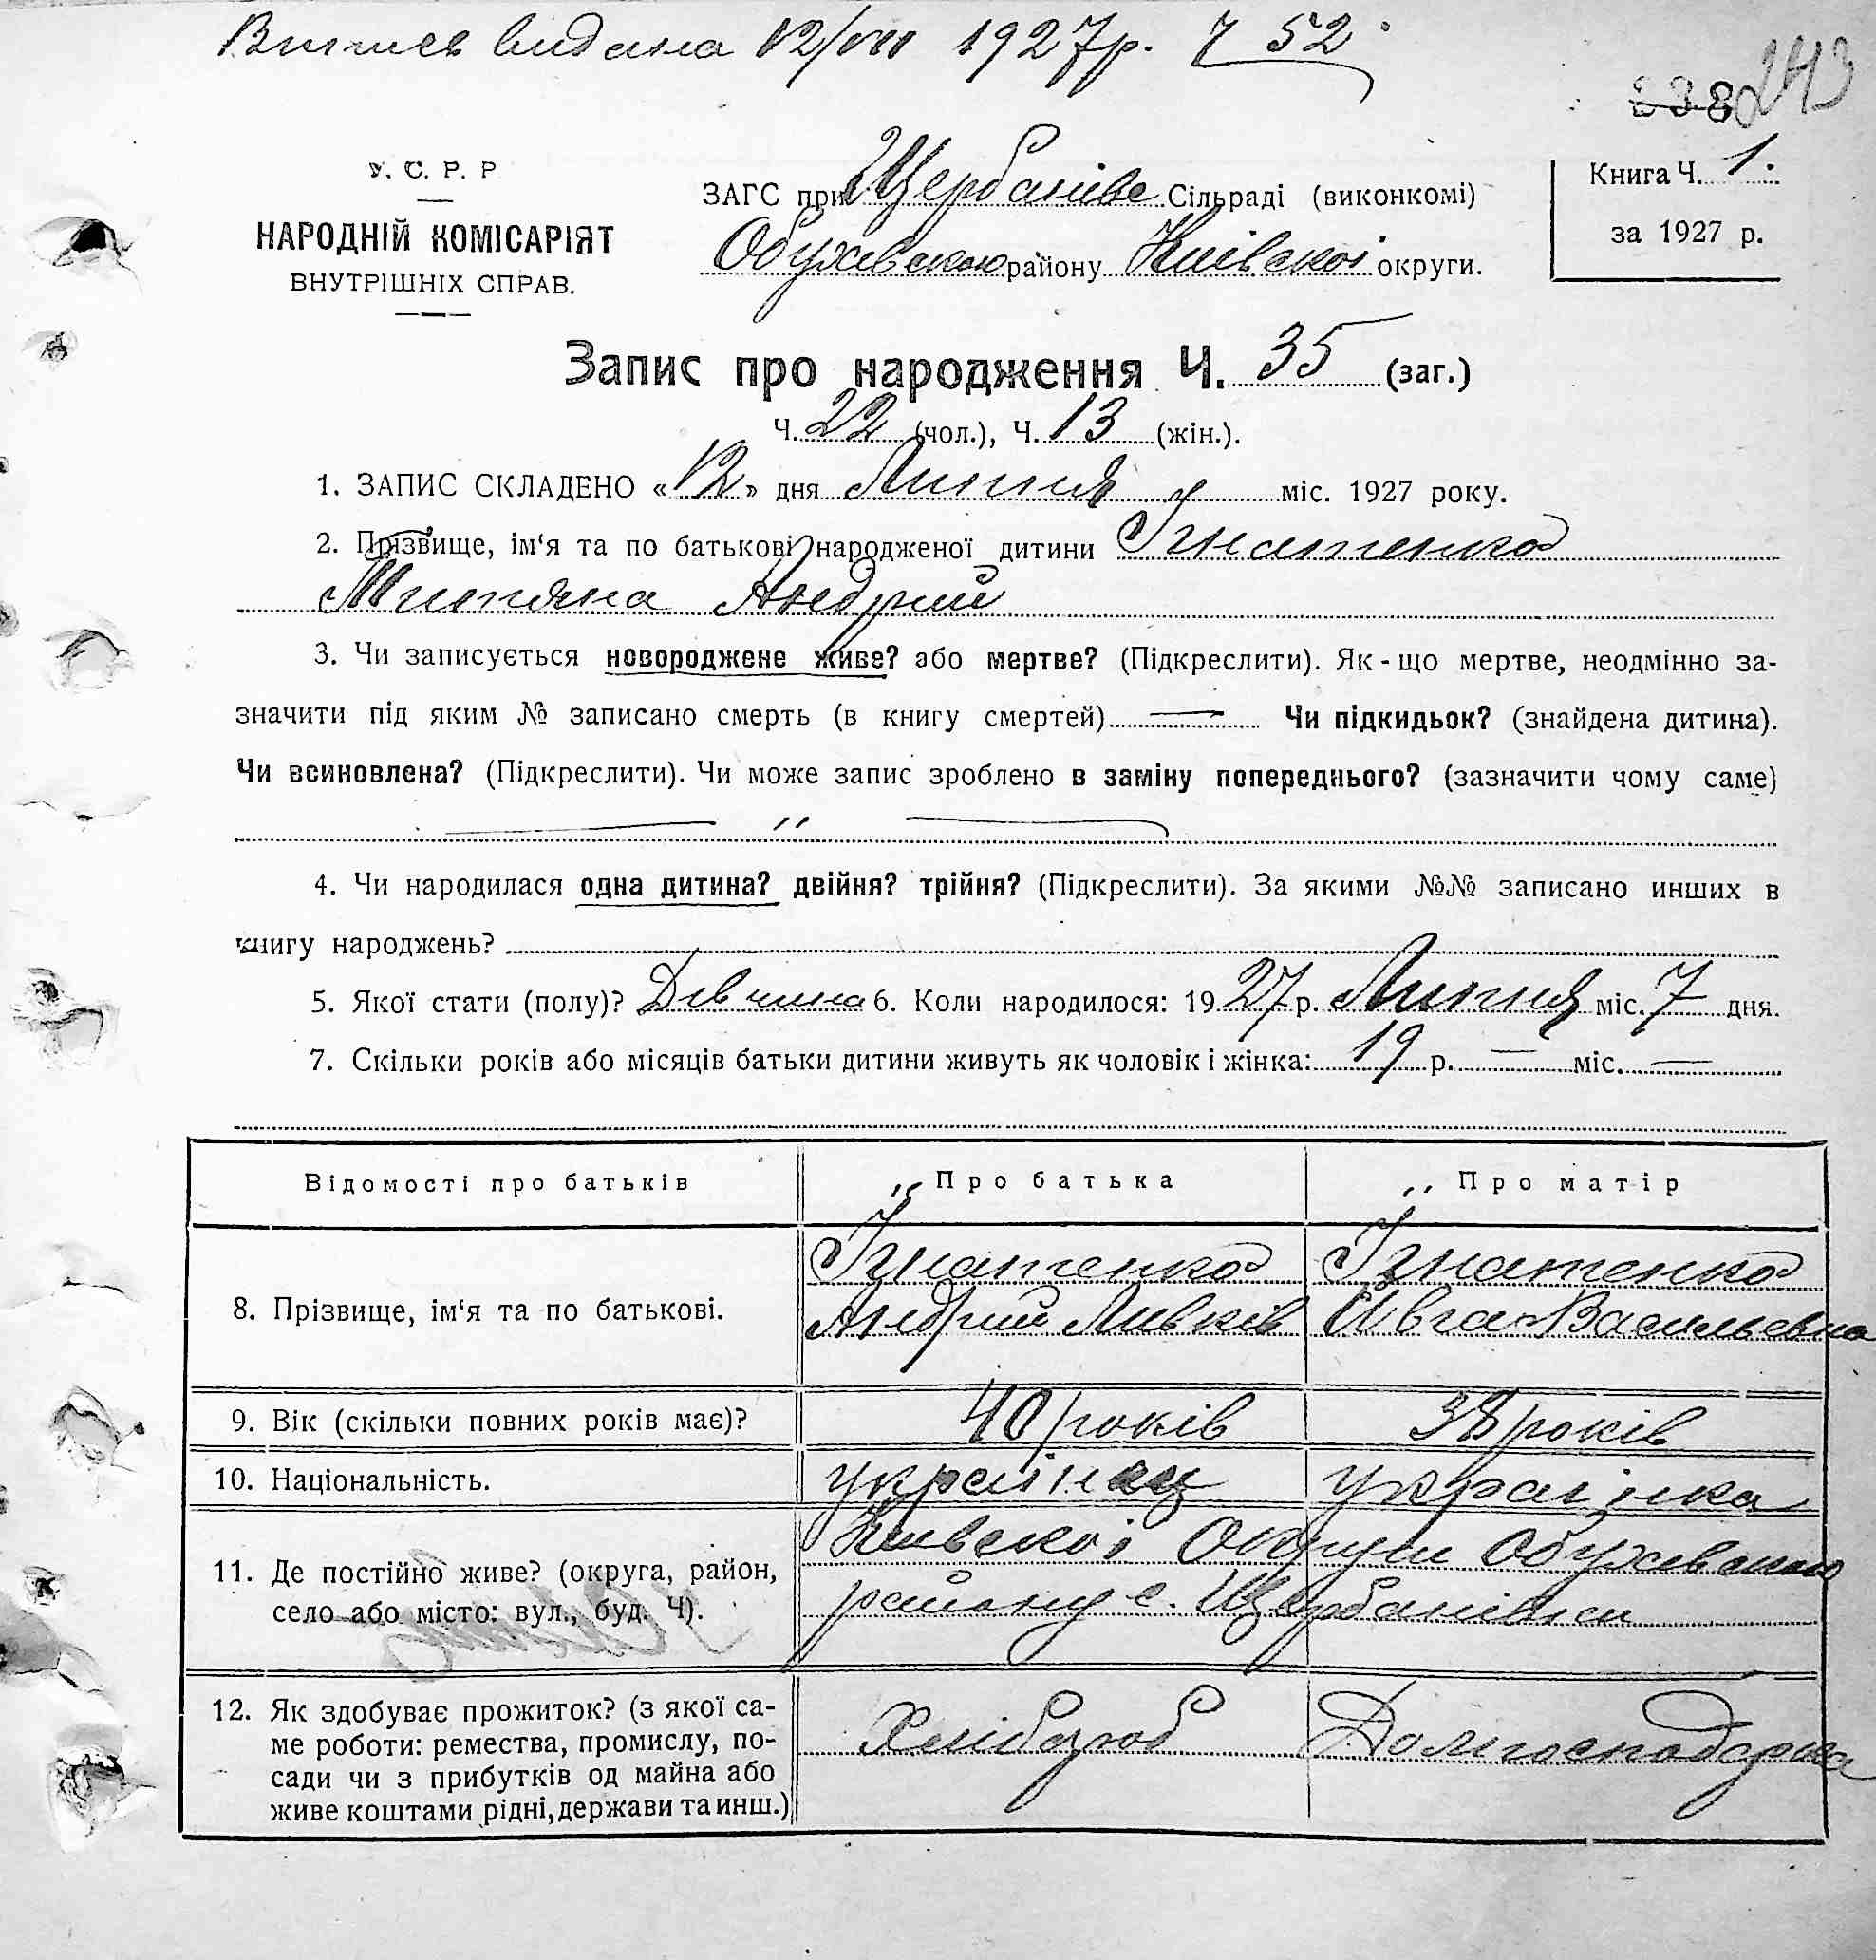 Витпись видана 12/VII 1927р. Ч 52
238 243
У. С. Р. Р
НАРОДНІЙ КОМІСАРІЯТ
ВНУТРІШНІХ СПРАВ.
ЗАГС при Щербанівс. Сільраді (виконкомі)
Обухівського району Київскоі округи.
Книга Ч. 1.
за 1927 р.
Запис про народження Ч. 35 (заг.)
Ч. 22 (чол.), Ч. 13 (жін.).
1. ЗАПИС СКЛАДЕНО «12» дня Липня міс. 1927 року.
2. Прізвище, ім‘я та по батькові народженої дитини Ігнатенко
Андрий
3. Чи записується новороджене живе? або мертве? (Підкреслити). Як-що мертве, неодмінно за-
значити під яким № записано смерть (в книгу смертей) — Чи підкидьок? (знайдена дитина).
Чи всиновлена? (Підкреслити). Чи може запис зроблено в заміну попереднього? (зазначити чому саме)
—〃 —
4. Чи народилася одна дитина? двійня? трійня? (Підкреслити). За якими №№ записано инших в
книгу народжень?
5. Якої стати (полу)? Дівчина 6. Коли народилося: 1927 р. Липня міс. 7 дня.
7. Скільки років або місяців батьки дитини живуть як чоловік і жінка: 19 р. — міс. —
Відомості про батьків Про батька Про матір
8. Прізвище, ім‘я та по батькові. Ігнатенко Ігнатенко
Андрий Ливків Ївга Васильевна
9. Вік (скільки повних років має)? 40 років 38 років
10. Національність. українец українка
11. Де постійно живе? (округа, район,
село або місто: вул., буд. Ч). Київскоі Округи Обухівського
району с. Щербанівки
12. Як здобуває прожиток? (з якої са-
ме роботи: ремества, промислу, по-
сади чи з прибутків од майна або
живе коштами рідні, держави та инш.) Хлібороб Домгосподарка